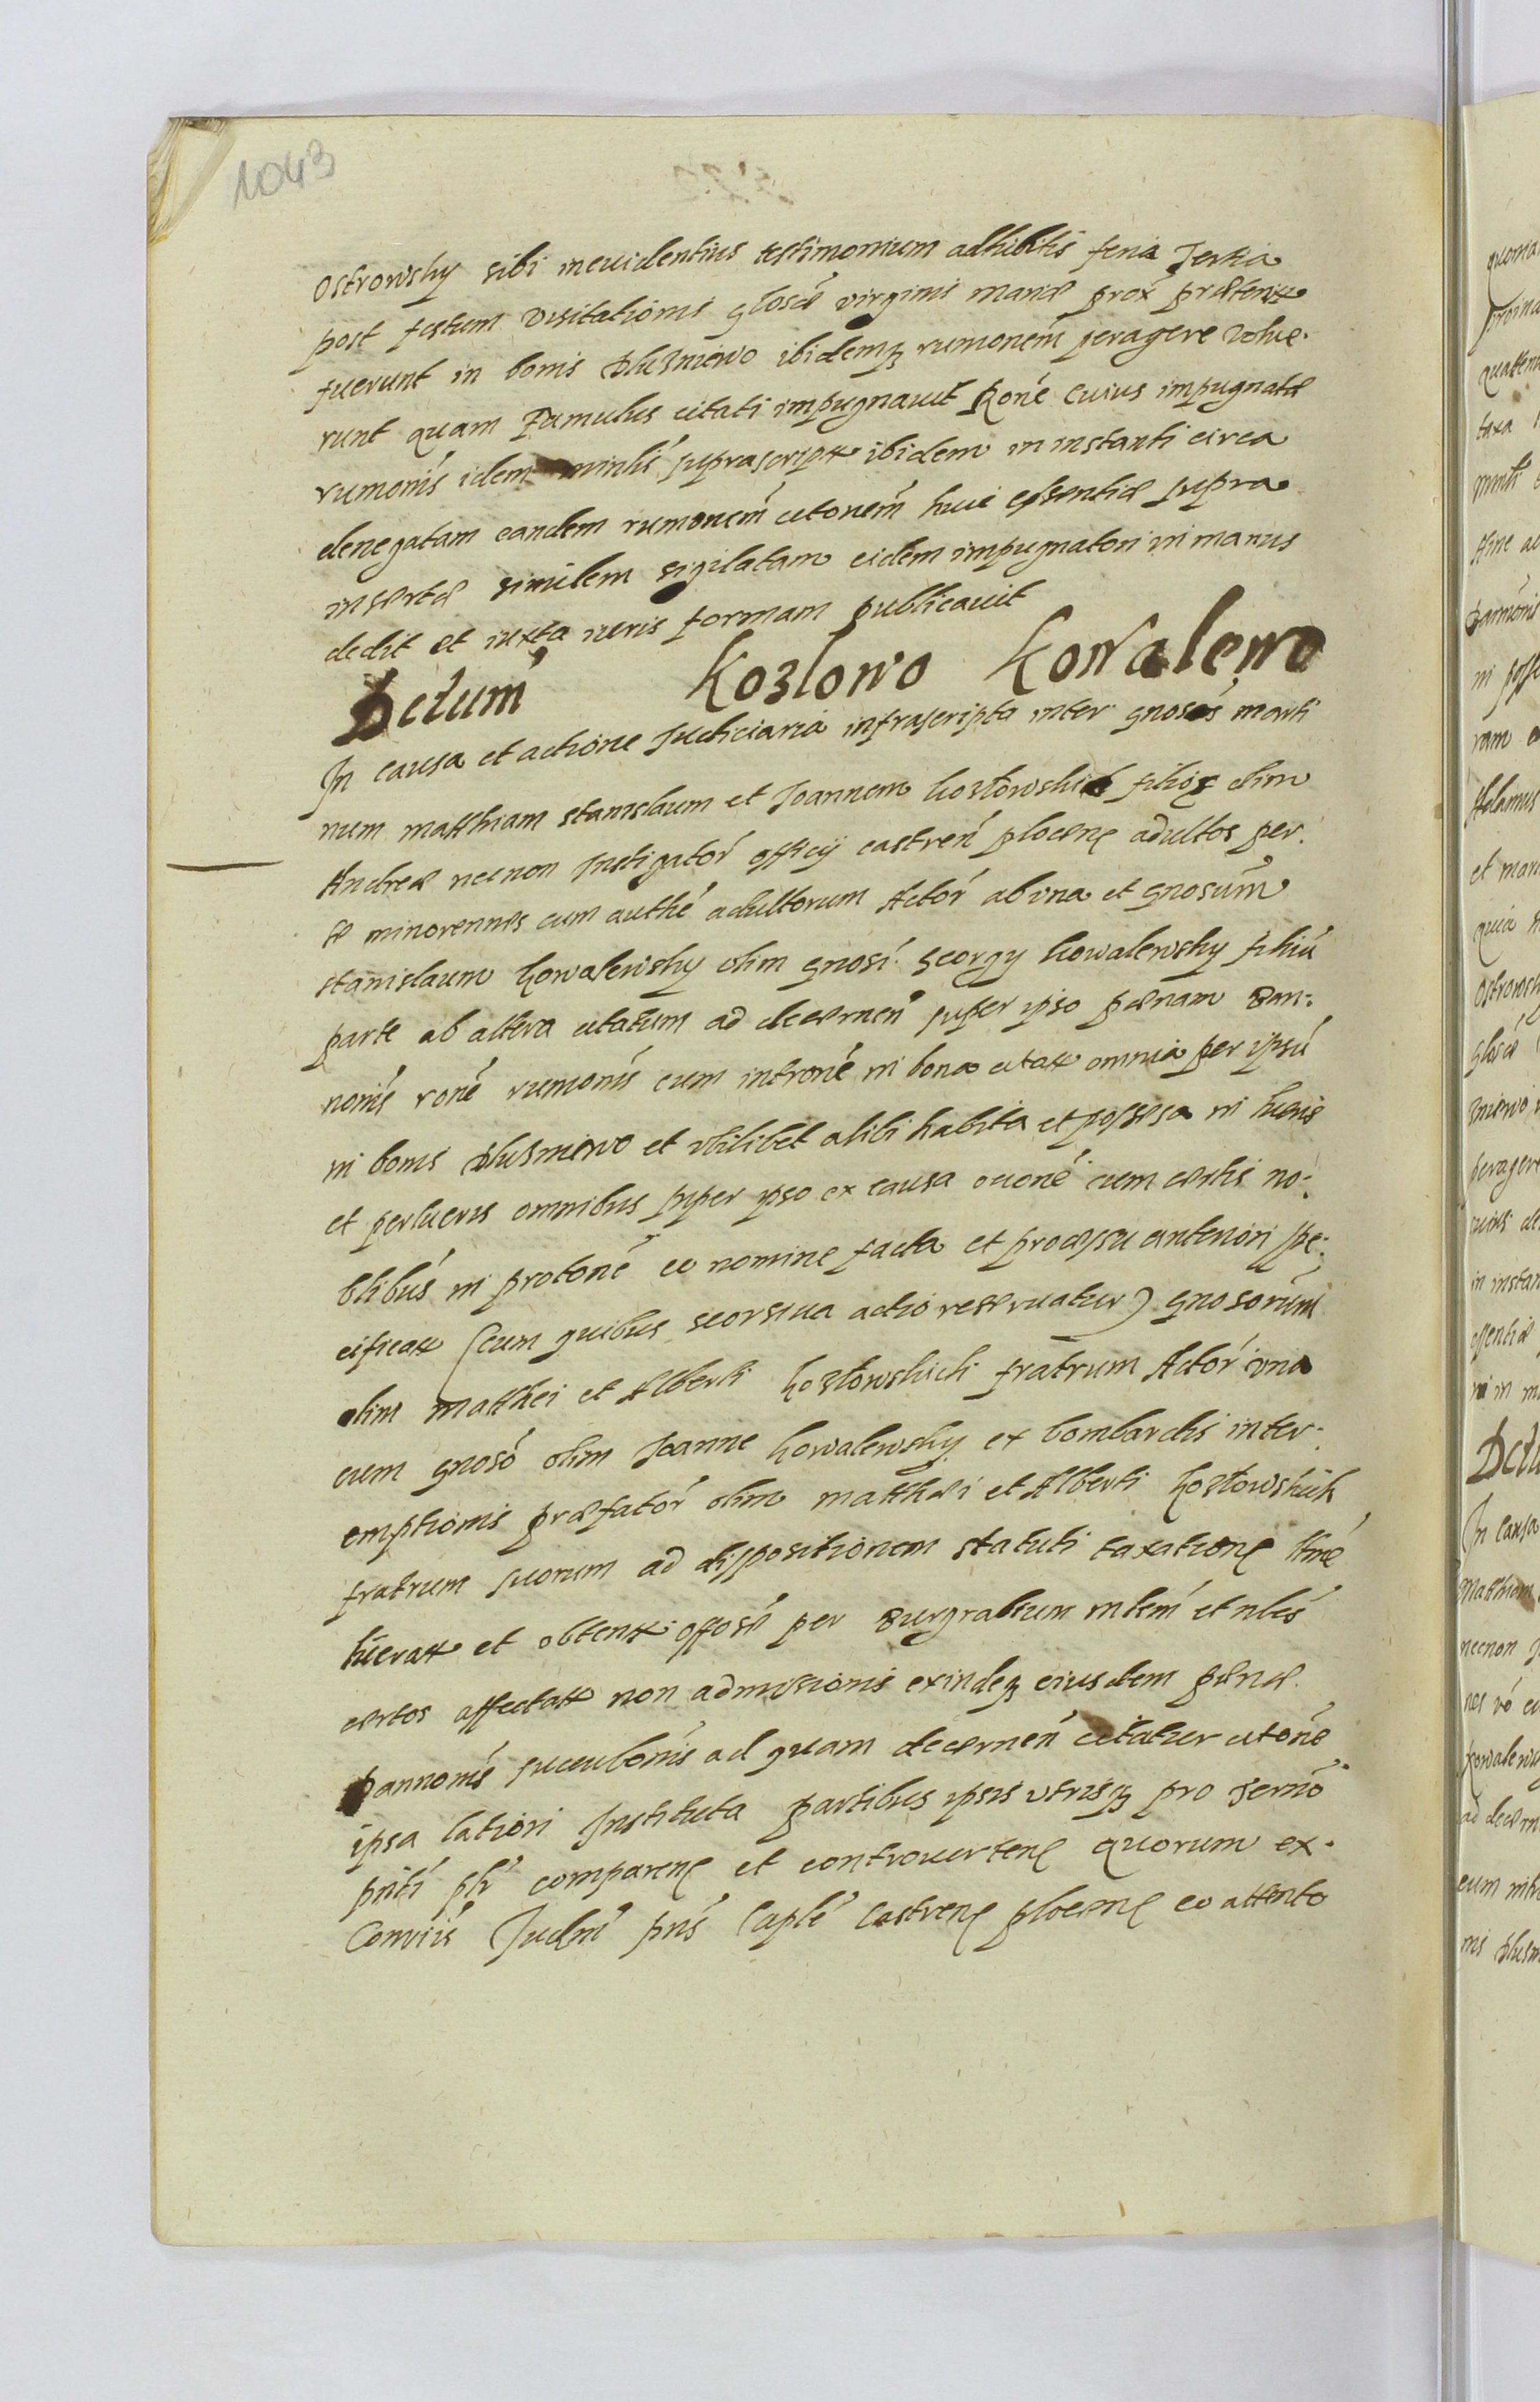 1043
Ostrowsky sibi in euidentius testimonium adhibitis feria Tertia
post festum Visitationis glosæ virginis mariæ prox præterit
fuerunt in bonis Plusniewo ibidemq rumonem peragere volue-
runt quam Famulus citati impugnauit Rone Cuius impugnatæ
rumonis idem minlis suprascript ibidem in instanti circa
denegatam eandem rumonem citonem huic essentiæ supra
insertæ similem sigilatam eidem impugnatori in manus
dedit et iuxta iuris formam publicauit
Dctum Kozlowo Kowalewo
In causa et actione Judiciaria infrascripta inter gnosos marti
num matthiam stanislaum et Joannem kozlowskie filios olim
Andreæ necnon Instigator officij castren plocen adultos per
se minorennes cum authe adultorum Actor ab vna et gnosum
stanislaum kowalewsky olim gnosi georgy kowalewsky filiu
parte ab altera citatum ad decernen super ipso pænam ban-
nonis rone rumonis cum introne in bona citat omnia per ipsu
in bonis Plusniewo et vbilibet alibi habita et possessa in lucris
et perlucris omnibus super ipso ex causa euone cum certis no-
blibus in protone eo nomine facta et processu anteriori spe-
cificat (cum quibus seorsiua actio reseruatur) gnosorum
olim matthei et Alberti kozlowskich fratrum Actor vna
cum gnoso olim Joanne kowalewsky ex bombardis inter-
emptionis præfator olim matthæi et Alberti kozlowskich
fratrum suorum ad dispositionem statuti taxatione
lucrat et obtent offose per burgrabium mlem et nles
certos affectat non admissionis exindeq eiusdem pænæ
bannonis succubonis ad quam decernen citatur citone
ipsa latiori Instituta partibus ipsis vtrisq pro termo
pnti comparen et controuerten quorum ex-
Conuiis Judm pns Caple Castren plocen eo attento